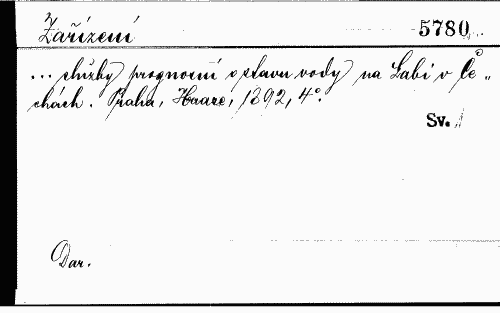 Zařízení 5780
... služby prognosní o stavu vody na Labi v Če„
chách. Praha, Haase, 1892, 4°.
Sv. 1
Dar.